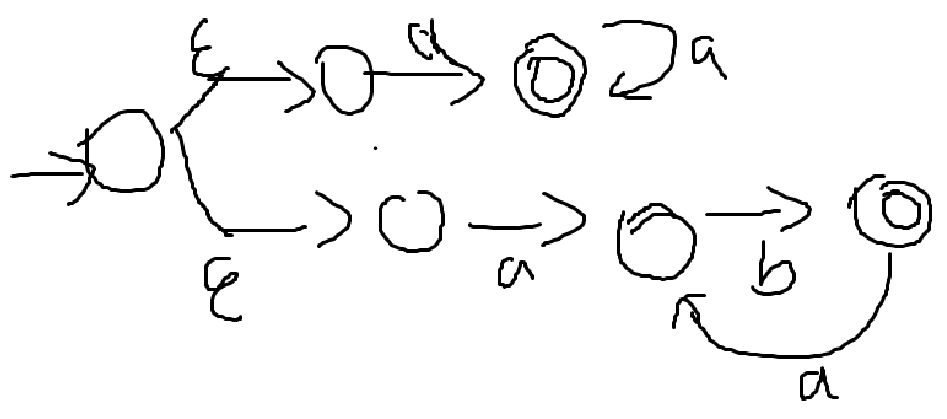 ε a
a
ε a b
a